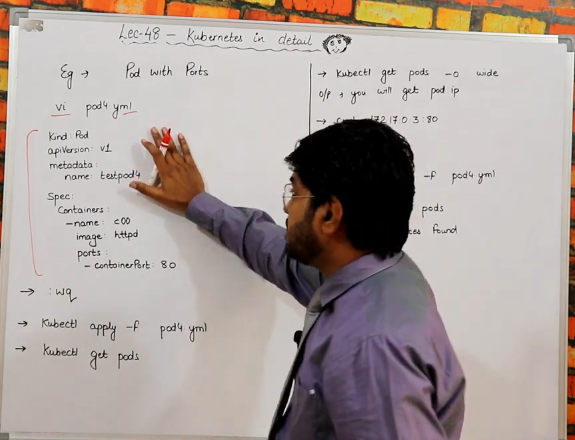 Lec-48 - Kubernetes in detail
Eg → Pod with Ports
vi pod4 yml
Kind: Pod
apiVersion: v1
metadata:
name: testpod4
Spec:
Containers:
- name: c00
image: httpd
ports:
- containerPort: 80
→ :wq
→ Kubectl apply -f pod4 yml
→ Kubectl get pods
→ Kubectl get pods -o wide
o/p → you will get pod ip
→ 172.17.0.3:80
-f pod4 yml
pods
found